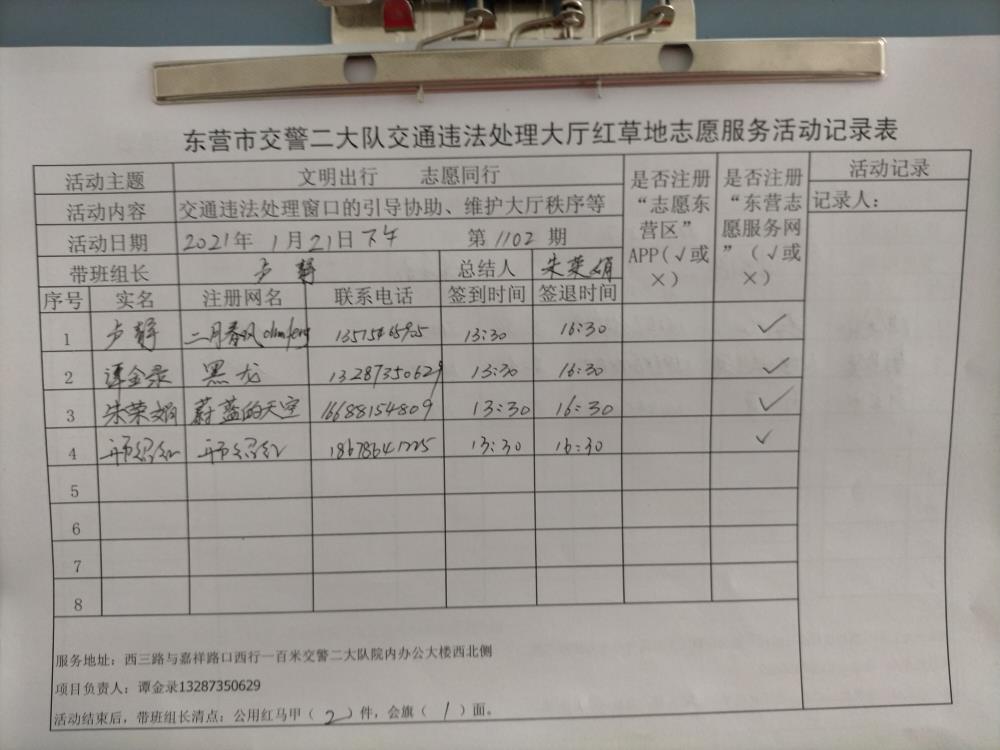 东营市交警二大队交通违法处理大厅红草地志愿服务活动记录表
活动主题 文明出行 志愿同行 是否注册“志愿东营区”APP(√或×) 是否注册“东营志愿服务网”(√或×) 活动记录
活动内容 交通违法处理窗口的引导协助、维护大厅秩序等 记录人:
活动日期 2021年1月21日下午 第1102期
带班组长 卢静 总结人 朱荣娟
序号 实名 注册网名 联系电话 签到时间 签退时间
1 卢静 二月春风 13:30 16:30 √
2 谭金录 黑龙 13287350629 13:30 16:30 √
3 朱荣娟 蔚蓝的天空 16688154809 13:30 16:30 √
4 18678641225 13:30 16:30 √
5
6
7
8
服务地址:西三路与嘉祥路口西行一百米交警二大队院内办公大楼西北侧
项目负责人:谭金录13287350629
活动结束后,带班组长清点:公用红马甲(2)件,会旗(1)面。